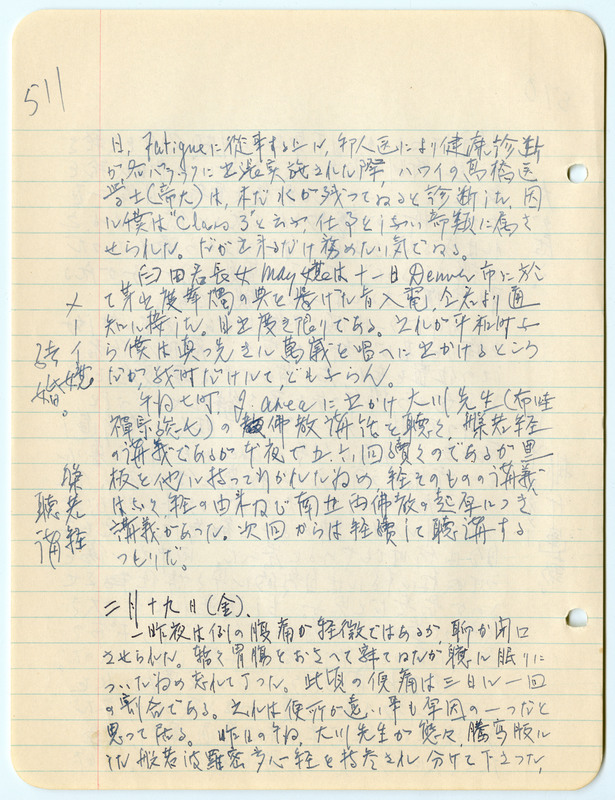 511
日、Fatigueに従事する上に、邦人医により健康診断
が実施された際、ハワイの高橋医
学士(帝大)は、未だ水が残ってゐると診断した、因
に僕は"Class 3"と云ふ、仕事としない部類に属さ
せられた。だが出来るだけ務めたい気でゐる。
臼田君長女May嬢は十一日Denver市に於
て華燭の典を挙げた旨入電、仝君より通
知に接した。目出度き限りである。これが平和時な
ら僕は真っ先きに萬歳を唱へに出かけるところ
だが、戦時だけに、どもならん。
メーイ嬢
結婚。
午后七時、J. areaに出かけ大川先生(布哇
禅宗)の仏教講話を聴く、般若経
の講義であるが午夜で五、六回續くのであるが黒
板を他に持って行かれたため、経そのものの講義
はなく、経の由来など南北両佛教の起原につき
講義があった。次回からは継續して聴講する
つもりだ。
般若経
聴講
二月十九日(金)、
一昨夜は例の腹痛が軽微ではあるが、聊か閉口
させられた。胃腸をおさへて寝てゐたが聴に眠りに
ついたため忘れて了った。此頃の便痛は三日に一回
の割合である。これは便所が遠い事も原因の一つだと
思って居る。昨日の午后、大川先生が態々、謄写版に
した般若波羅密多心経を持参され分けて下さった、